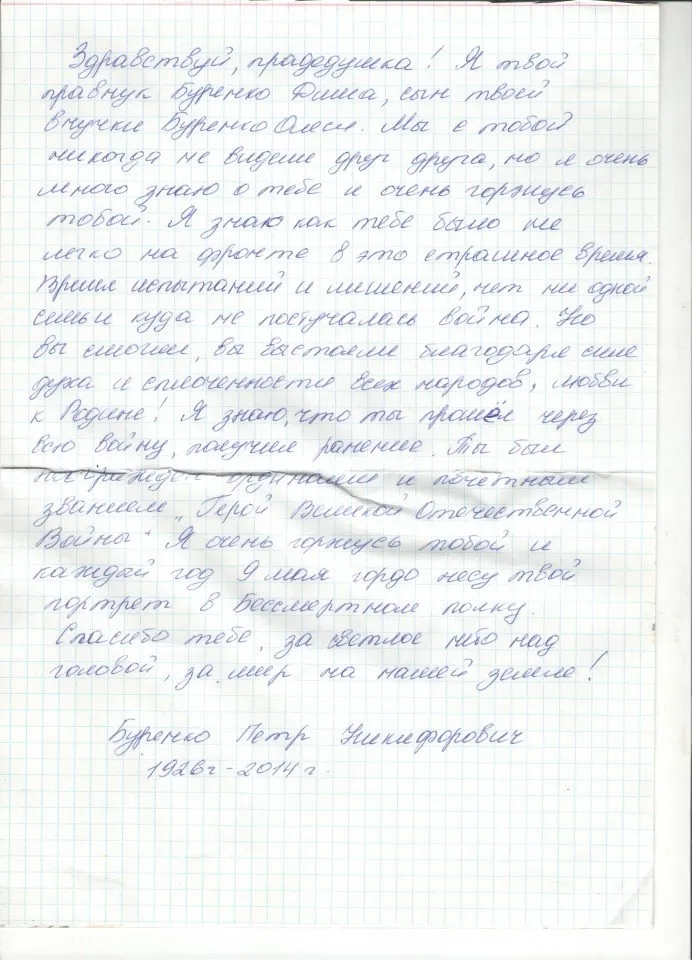 Здравствуй, прадедушка! Я твой
правнук Буренко Дима, сын твоей
внучки Буренко Олеси. Мы с тобой
никогда не видели друг друга, но я очень
много знаю о тебе и очень горжусь
тобой. Я знаю как тебе было не
легко на фронте в это страшное время.
Время испытаний и лишений, нет ни одной
семьи куда не постучалась война. Но
вы смогли, вы выстояли благодаря силе
духа и сплоченности всех народов, любви
к Родине! Я знаю, что ты прошёл через
всю войну, получил ранение. Ты был
награжден орденами и почетным
званием "Герой Великой Отечественной
Войны" Я очень горжусь тобой и
каждый год 9 мая гордо несу твой
портрет в Бессмертном полку.
Спасибо тебе, за светлое небо над
головой, за мир на нашей земле!
Буренко Петр Никифорович
1926г-2014г.